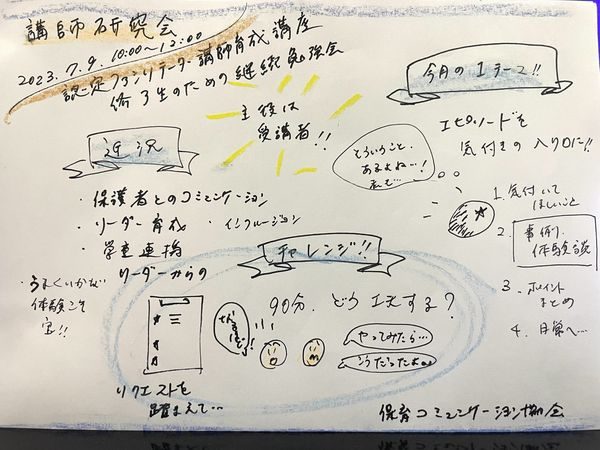 講師研究会
2023.7.9. 10:00～12:00
認定ファシリテーター講師育成講座
修了生のための継続勉強会
主役は
受講者!!
今月の1テーマ!!
エピソードを
気付きの入り口に!!
近況
・保護者とのコミュニケーション
・リーダー育成 ・インクルージョン
・学童連携
リーダーからの
・うまくいかない
体験こそ
宝!!
そういうこと、
あるよね…!
1. 気付いて
ほしいこと
2. 事例、
体験談
3. ポイント
まとめ
4. 日常へ…
チャレンジ!!
90分、どう工夫する?
なるほど!
やってみたら…
そうだったなぁ
リクエストを
踏まえて…
保育コミュニケーション協会